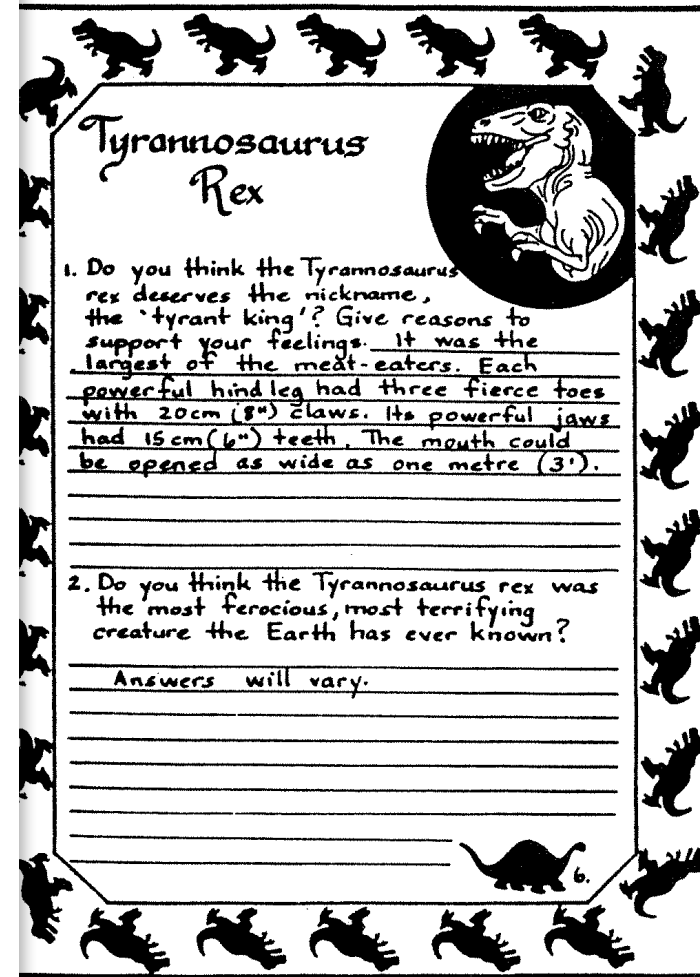 Tyrannosaurus
Rex
1. Do you think the Tyrannosaurus
rex deserves the nickname,
the 'tyrant king'? Give reasons to
support your feelings. It was the
largest of the meat-eaters. Each
powerful hind leg had three fierce toes
with 20cm (8") claws. Its powerful jaws
had 15cm (6") teeth. The mouth could
be opened as wide as one metre (3').
2. Do you think the Tyrannosaurus rex was
the most ferocious, most terrifying
creature the Earth has ever known?
Answers will vary.
6.